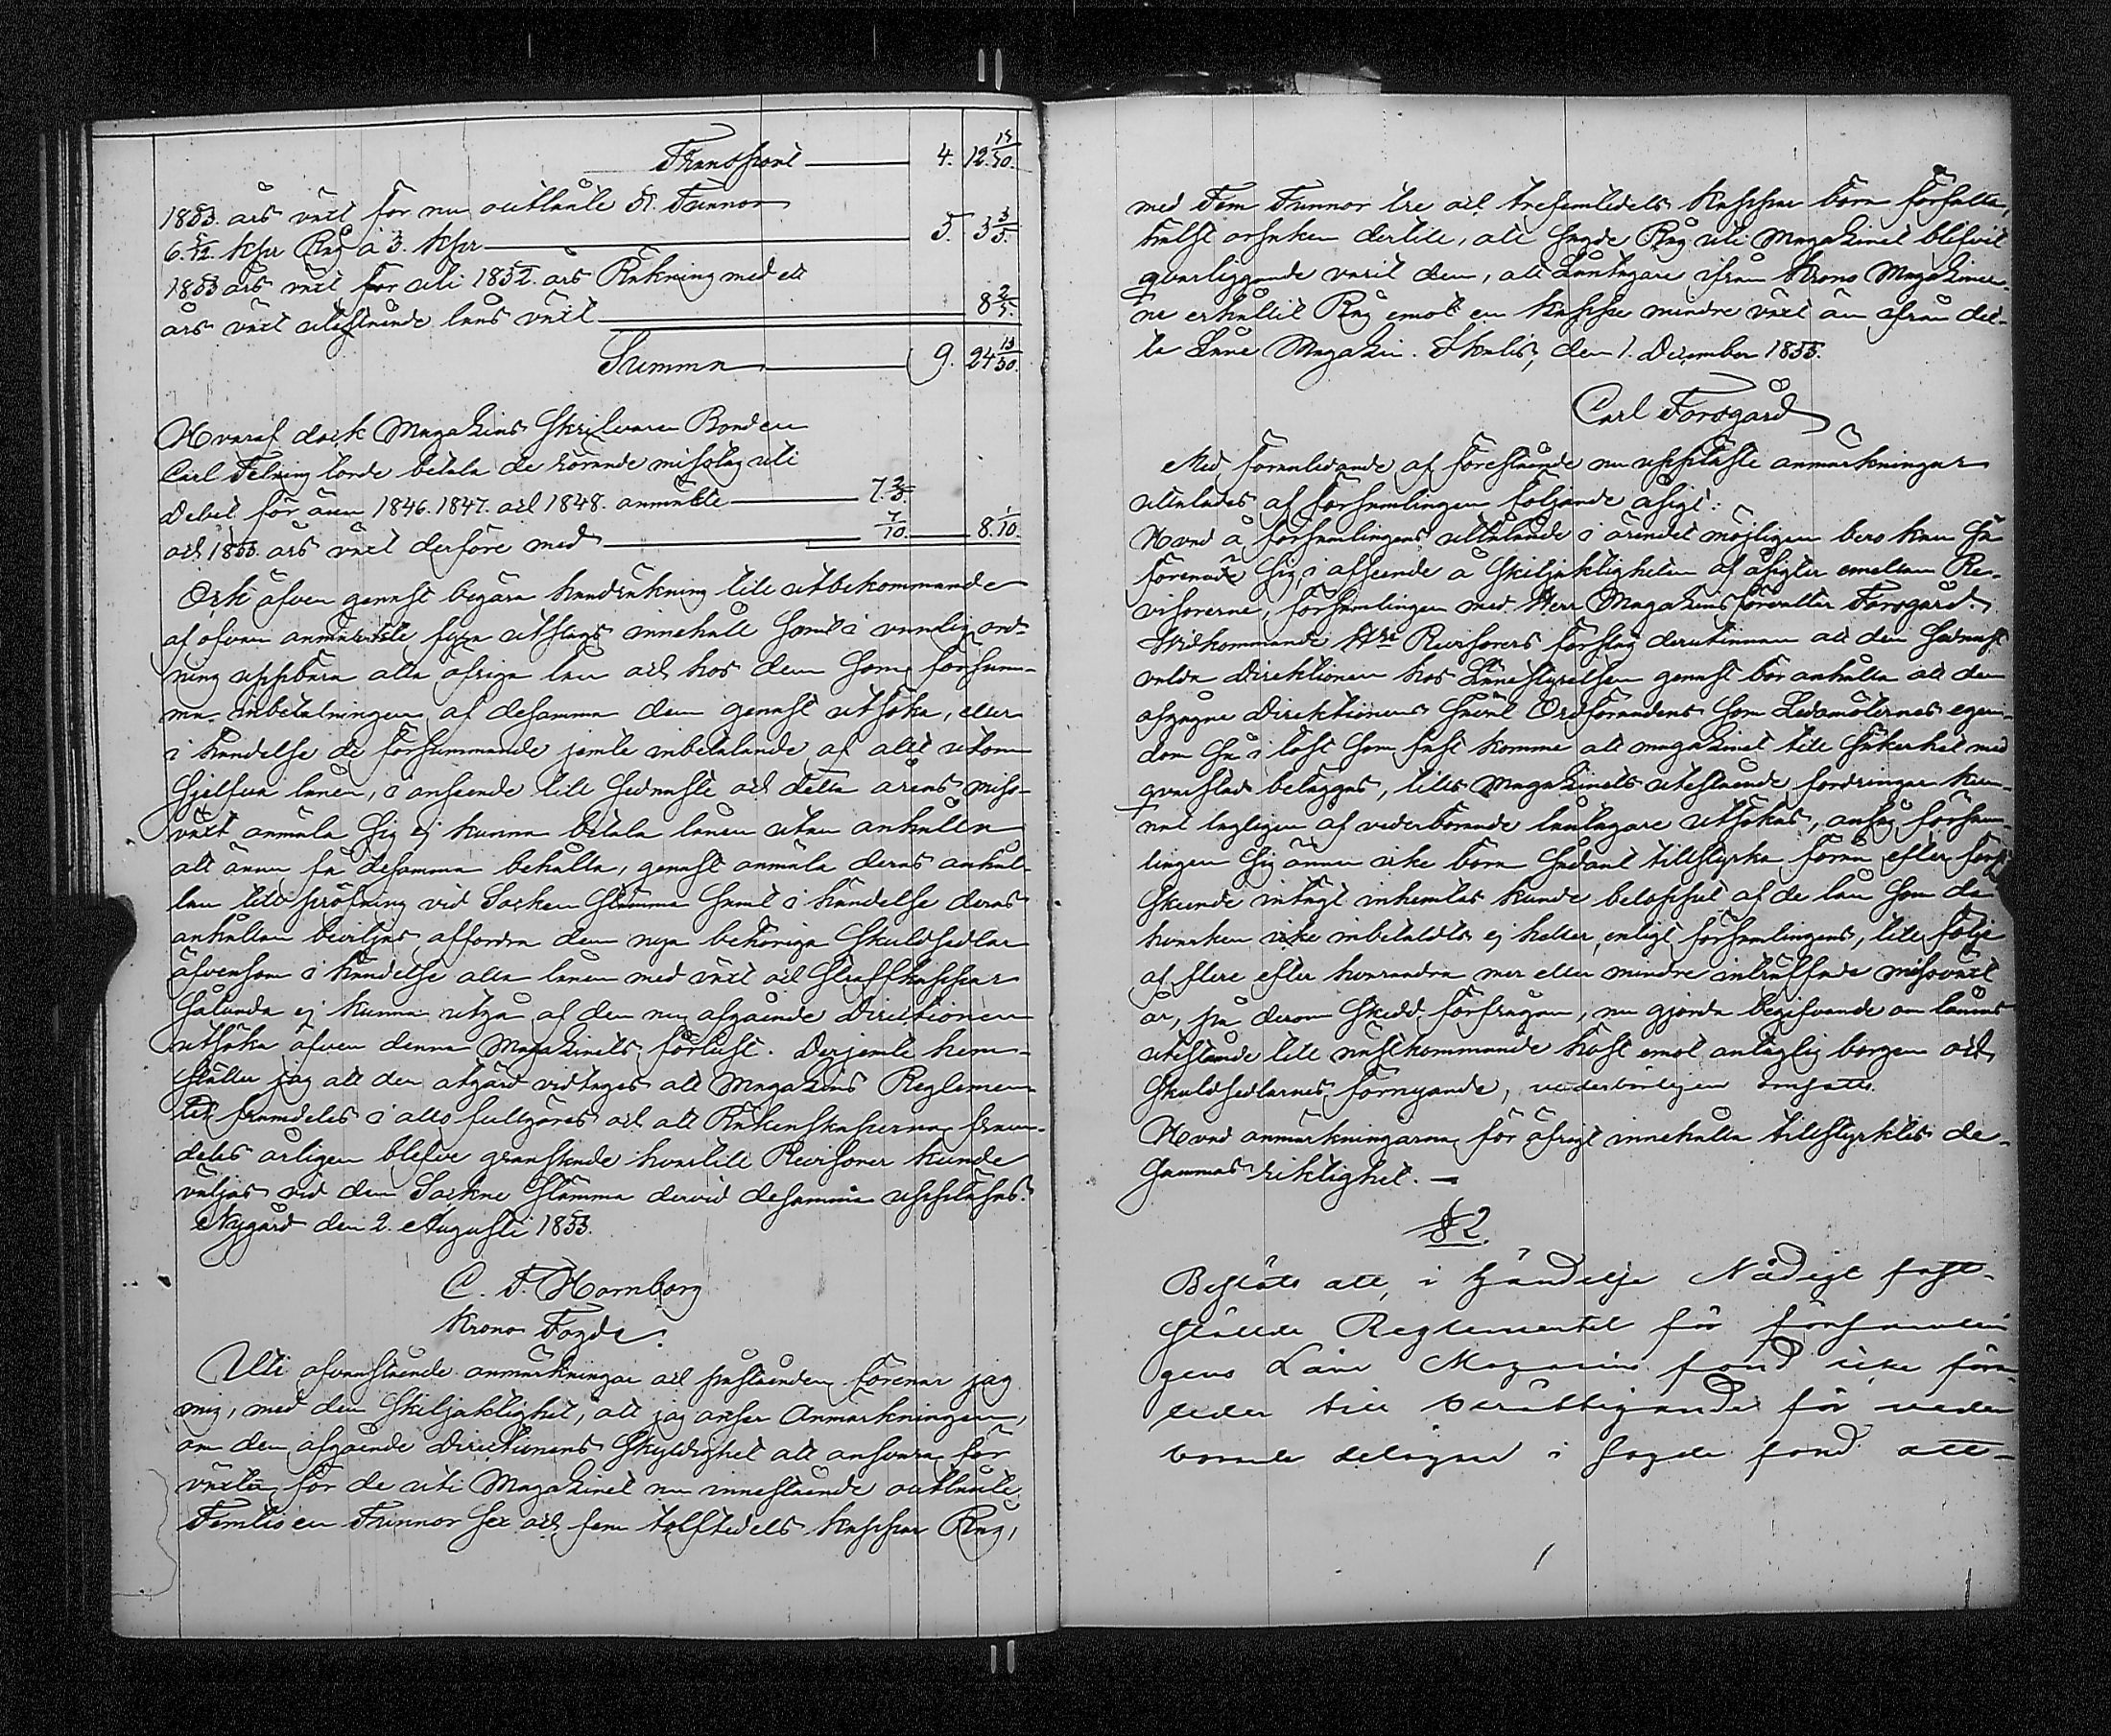 Transport 4. 12. 19/30.
1853. års växt för nu outlånte 51. Tunnor
6. 5/12. kpr Råg à 3. kpr 5. 3 3/5.
1853 års växt för uti 1852. års Räkning med ett
års växt utestående låns växt 8 2/5.
Summa 9. 24 19/30.
Hvaraf dock Magazins Skrifvaren Bonden
Carl Felning torde betala de rörande misstag uti
Debet för åren 1846. 1847. och 1848. anmärkte 7 2/5
och 1853. års växt derföre med 7/10. 8. 1/10.
Och äfven genast begära handräkning till utbekommande
af ofvan anmärkte Utslags innehåll samt i vanlig ord-
ning uppbära alla öfriga lån och hos dem som försum-
ma inbetalningen af desamma dem genast utsöka, eller
i händelse de försummande jemte inbetalande af allt utom
sjelfva lånen, i anseende till sednaste och detta årens miss-
växt anmäla sig ej kunna betala lånen utan anhålla
att ännu få desamma behålla, genast anmäla deras anhål-
lan till pröfning vid Socken Stämma samt i händelse deras
anhållan beviljas affordra dem nya behöriga Skuldsedlar
äfvensom i händelse alla lånen med växt och Straffkappar
sålunda ej kunna utgå af den nu afgående Directionen
utsöka äfven denna Magazinets förlust. Derjemte hem-
ställer jag att den åtgärd vidtages att Magazins Reglemen-
tet framdeles i allo fullgöres och att Räkenskaperna fram-
deles årligen blefve granskade hvartill Revisorer kunde
väljas vid den Sockne Stämma dervid desamma uppläsas.
Nygård den 2. Augusti 1853.
C. F. Hornborg
Krono Fogde.
Uti ofvanstående anmärkningar och påståenden förenar jag
mig, med den Skiljaktighet, att jag anser Anmärkningen,
om den afgående Directionens Skyldighet att ansvara för
växten för de uti Magazinet nu innestående outlånte
Femtioen Tunnor sex och fem tolftedels kappar Råg,
med Fem Tunnor tre och trefemtedels kappar böra förfalla,
hälst orsaken dertill, att sagde Råg uti Magazinet blifvit
qvarliggande varit den, att Låntagare ifrån Krono Magaziner-
ne erhållit Råg emot en kappe mindre växt än ifrån det-
ta Låne Magazin. den 1. December 1853.
Carl Forsgård
Med föranledande af förestående nu uppläste anmärkningar
uttalades af Församlingen följande åsigt:
Hvad å församlingens uttalande i ärendet möjligen bero kan så
förenade sig, i afseende å Skiljaktigheten af åsigter emellan Re-
visorerne, församlingen med Herr Magazinsförvaltar Forsgård.
Vidkommande Hrr Revisorers förslag derutinnan att den sednast
valda Direktionen hos Länestyrelsen genast bör anhålla att den
afgågne Direktionens såväl Ordförandens som Ledamöternes egen-
dom så i löst som fast komme att magazinet till säkerhet med
qvarstad beläggas, tills Magazinets utestående fordringar kun-
nat lagligen af vederbörande låntagare utsökas, ansåg försam-
lingen sig ännu icke böra sådant tillstyrka förrän efter
skeende intägt inhemtas kunde beloppet af de lån som
hvarken icke inbetaldts ej heller, enligt församlingens, till följe
af flere efter hvarandra mer eller mindre inträffade missväxt
år, på derom skedd förfrågan, nu gjorda begifvande om lånens
utestående till nästkommande höst emot antaglig borgen och
Skuldsedlarnes förnyande, vederbörligen omsatts.
Hvad anmärkningarna för öfrigt innehålla tillstyrktes de-
sammas riktighet. —
§ 2.
Beslöts att, i händelse Nådigt fast-
ställda Reglementet för församlin
gens Låne Magazins fond icke föran
leder till berättigande för veder
börande delägare i sagde fond att-